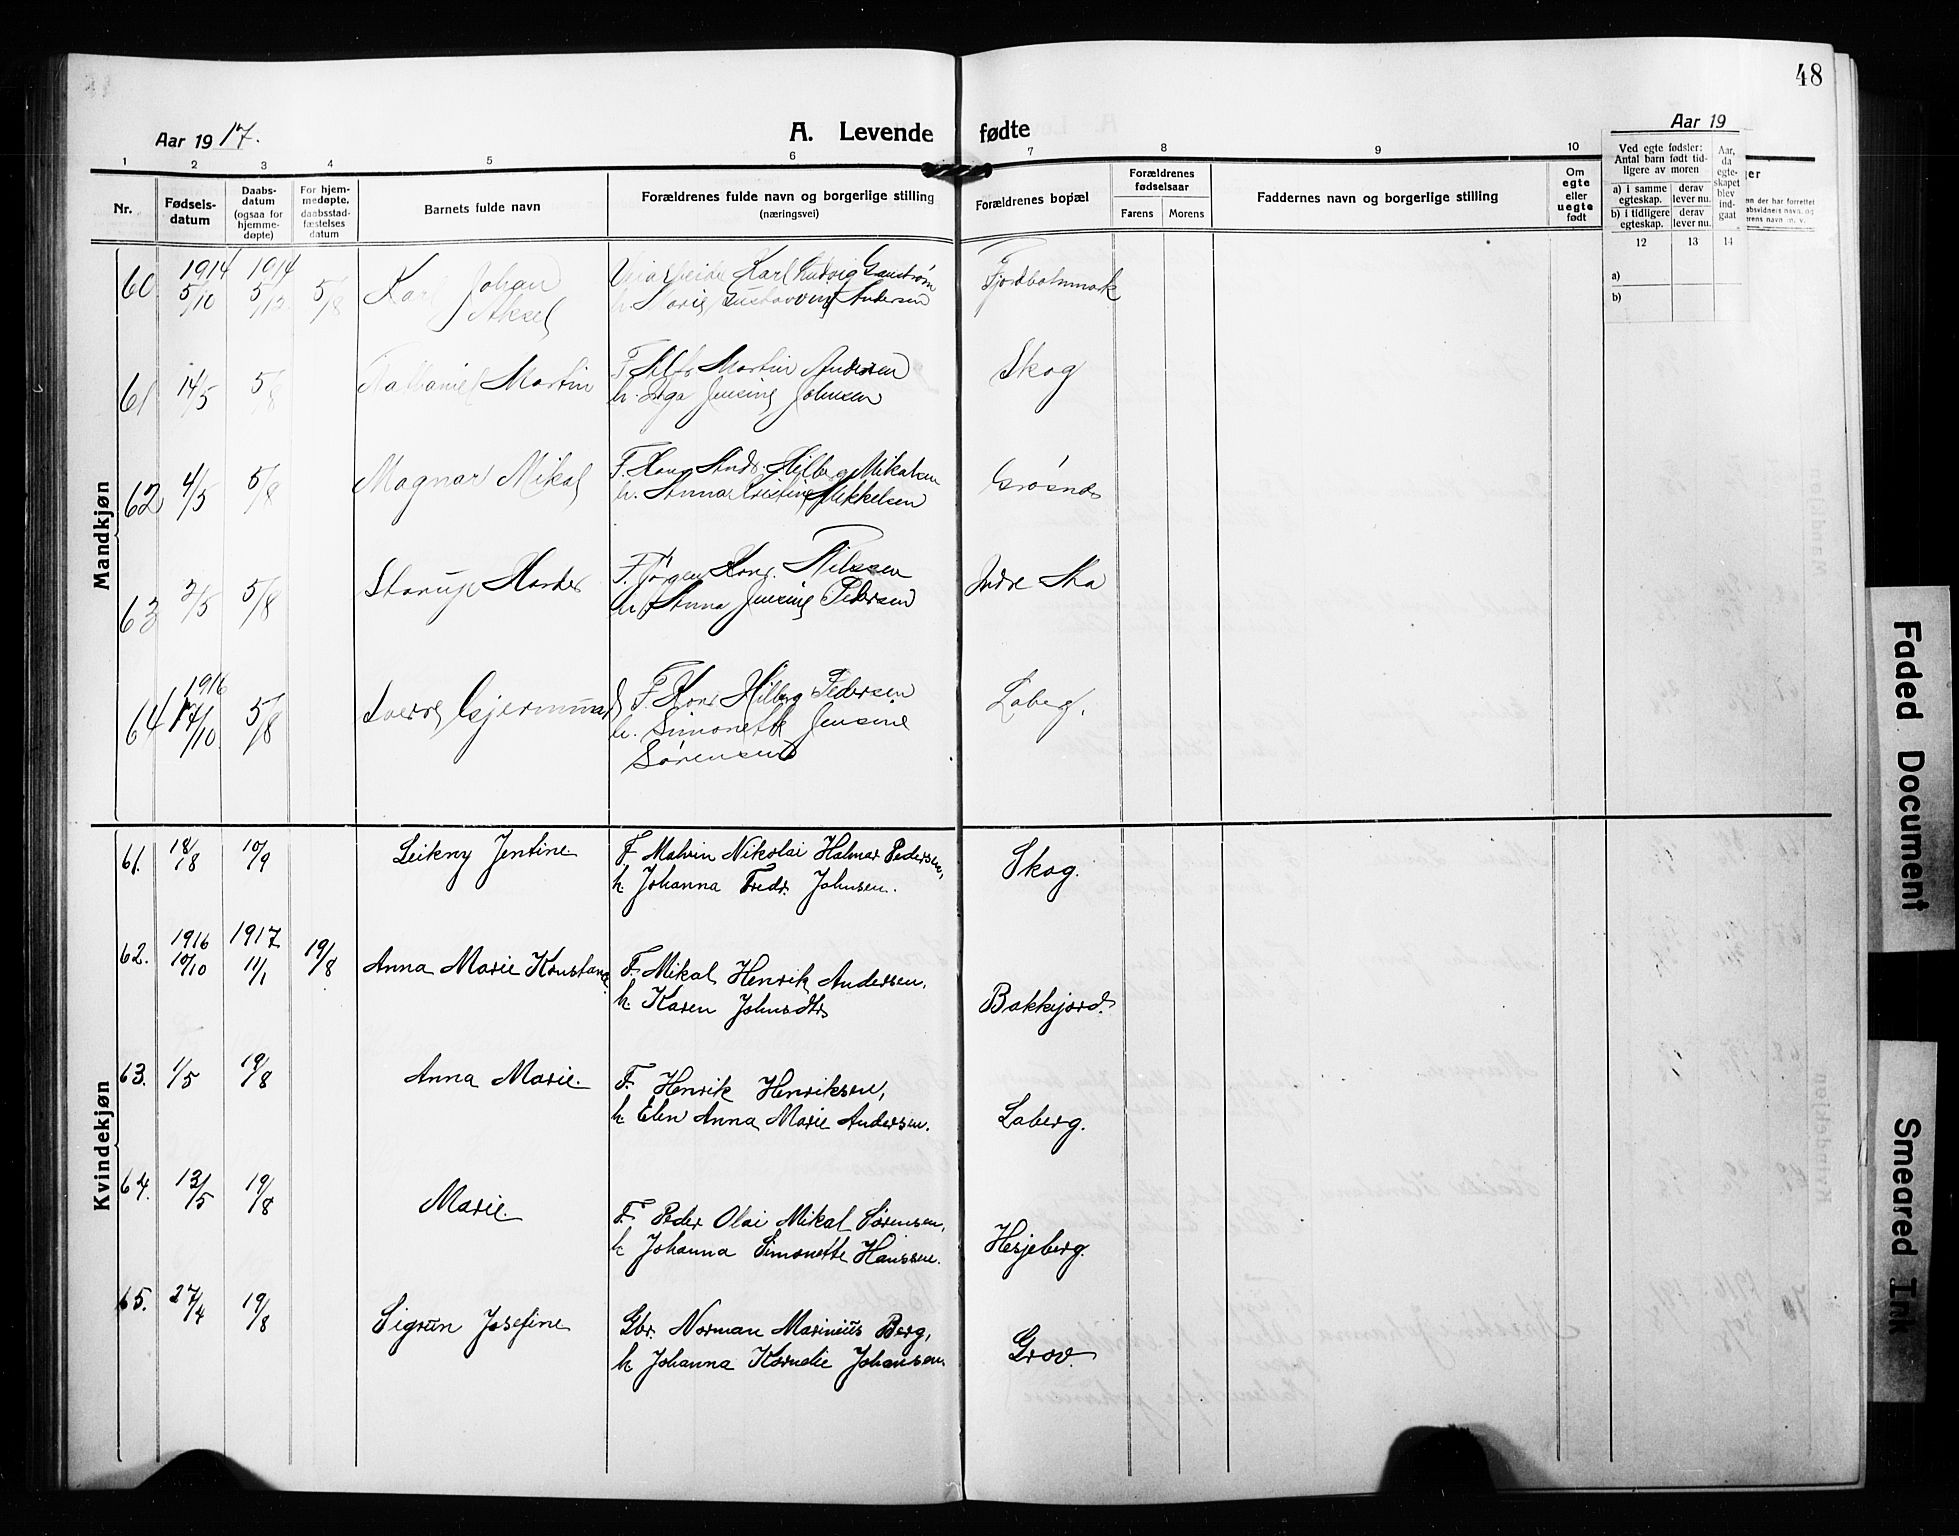 48
Aar 1917.
A. Levende fødte
Aar 19
1 2 3 4 5 6 7 8 9 10
Nr.
Fødsels-datum
Daabs-datum (ogsaa for hjemme-døpte)
For hjem-medøpte, daabsstad-fæstelses datum
Barnets fulde navn
Forældrenes fulde navn og borgerlige stilling (næringsvei)
Forældrenes bopæl
Forældrenes fødselsaar
Farens Morens
Faddernes navn og borgerlige stilling
Om egte eller uegte født
Ved egte fødsler: Antal barn født tid-ligere av moren
a) i samme egteskap. derav lever nu.
b) i tidligere egteskap. derav lever nu.
Aar, da egte-skapet blev ind-gaat
12 13 14
a)
b)
Mandkjøn
60 1914 5/10 1914 5/12 5/8 Karl Johan Aksel
Karl Ludvig
Andersen
Fjordbotnmark
61 14/5 5/8 Martin
F. Martin Andersen
h. Inga Jensine Johnsen
Skog
62 4/5 5/8 Magnar Mikal
F. Hans Andr. Hilberg Mikalsen
h. Anna Kristine Mikkelsen
Grøsnes
63 2/5 5/8
F. Jørgen Nilssen
h. Anna Jensine Pedersen
Indre Aa
64 1916 17/10 5/8 Sverre Gjermund
F. Hans Hilberg Pedersen
h. Simonette Jensine
Sørensen
Laberg.
Kvindekjøn
61. 18/8 10/9 Leikny Jentine
F. Malvin Nikolai Halmar Pedersen,
h. Johanna Fredr. Johnsen.
Skog.
62. 1916 10/10 1917 11/1 19/8 Anna Marie Konstanse
F. Mikal Henrik Andersen,
h. Karen Johnsdtr
Bakkejord.
63. 1/5 19/8 Anna Marie.
F. Henrik Henriksen,
h. Elen Anna Marie Andersen.
Laberg.
64. 13/5 19/8 Marie.
F. Peder Olai Mikal Sørensen,
h. Johanna Simonette Hanssen.
Hesjeberg.
65. 27/4 19/8 Sigrun Josefine
Gbr. Norman Marinius Berg,
h. Johanna Kornelie Johansen
Grov.
Faded Document
Smeared Ink